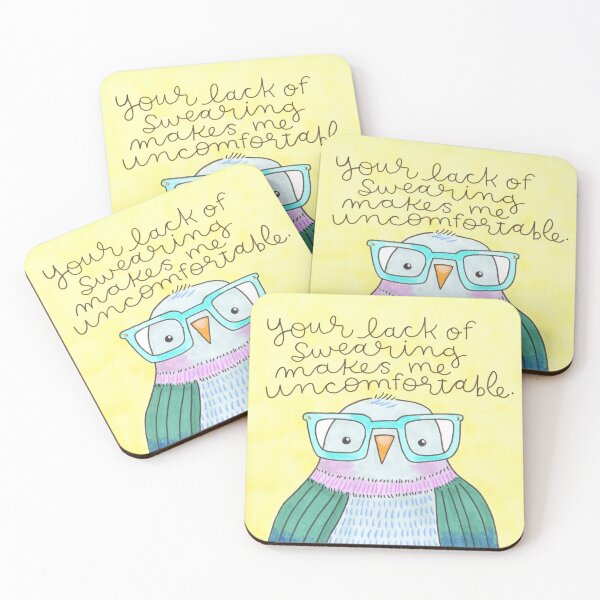 your lack of
swearing
makes me
uncomfortabl
your lack of
swearing
makes me
uncomfortable.
your lack of
swearing
makes me
uncomfortable.
your lack of
swearing
makes me
uncomfortable.